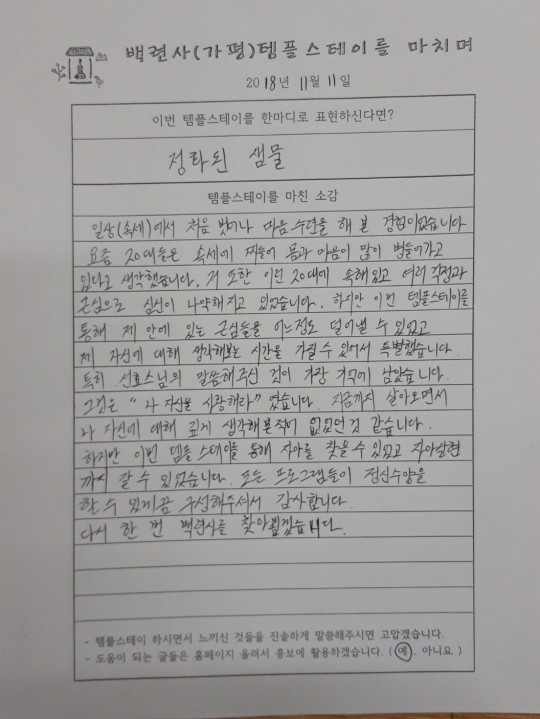 백련사(가평)템플스테이를 마치며
2018년 11월 11일
이번 템플스테이를 한마디로 표현하신다면?
정화된 샘물
템플스테이를 마친 소감
일상(속세)에서 처음 벗어나 마음수련을 해 본 경험이었습니다
요즘 20대들은 속세에 찌들어 몸과 마음이 많이 병들어가고
있다고 생각했습니다. 저 또한 이런 20대에 속해있고 여러 걱정과
근심으로 심신이 나약해지고 있었습니다. 하지만 이번 템플스테이를
통해 제 안에 있는 근심들을 어느정도 덜어낼 수 있었고
제 자신에 대해 생각해보는 시간을 가질 수 있어서 특별했습니다.
특히 선호스님의 말씀해주신 것이 가장 기억에 남았습니다.
그것은 "나 자신을 사랑해라" 였습니다. 지금까지 살아오면서
나 자신에 대해 깊게 생각해본적이 없었던것 같습니다.
하지만 이번 템플 스테이를 통해 자아를 찾을 수 있었고 자아실현
까지 할 수 있었습니다. 모든 프로그램들이 정신수양을
할 수 있게끔 구성해주셔서 감사합니다.
다시 한 번 백련사를 찾아뵙겠습니다.
- 템플스테이 하시면서 느끼신 것들을 진솔하게 말씀해주시면 고맙겠습니다.
- 도움이 되는 글들은 홈페이지 올려서 홍보에 활용하겠습니다. ( 예, 아니요 )